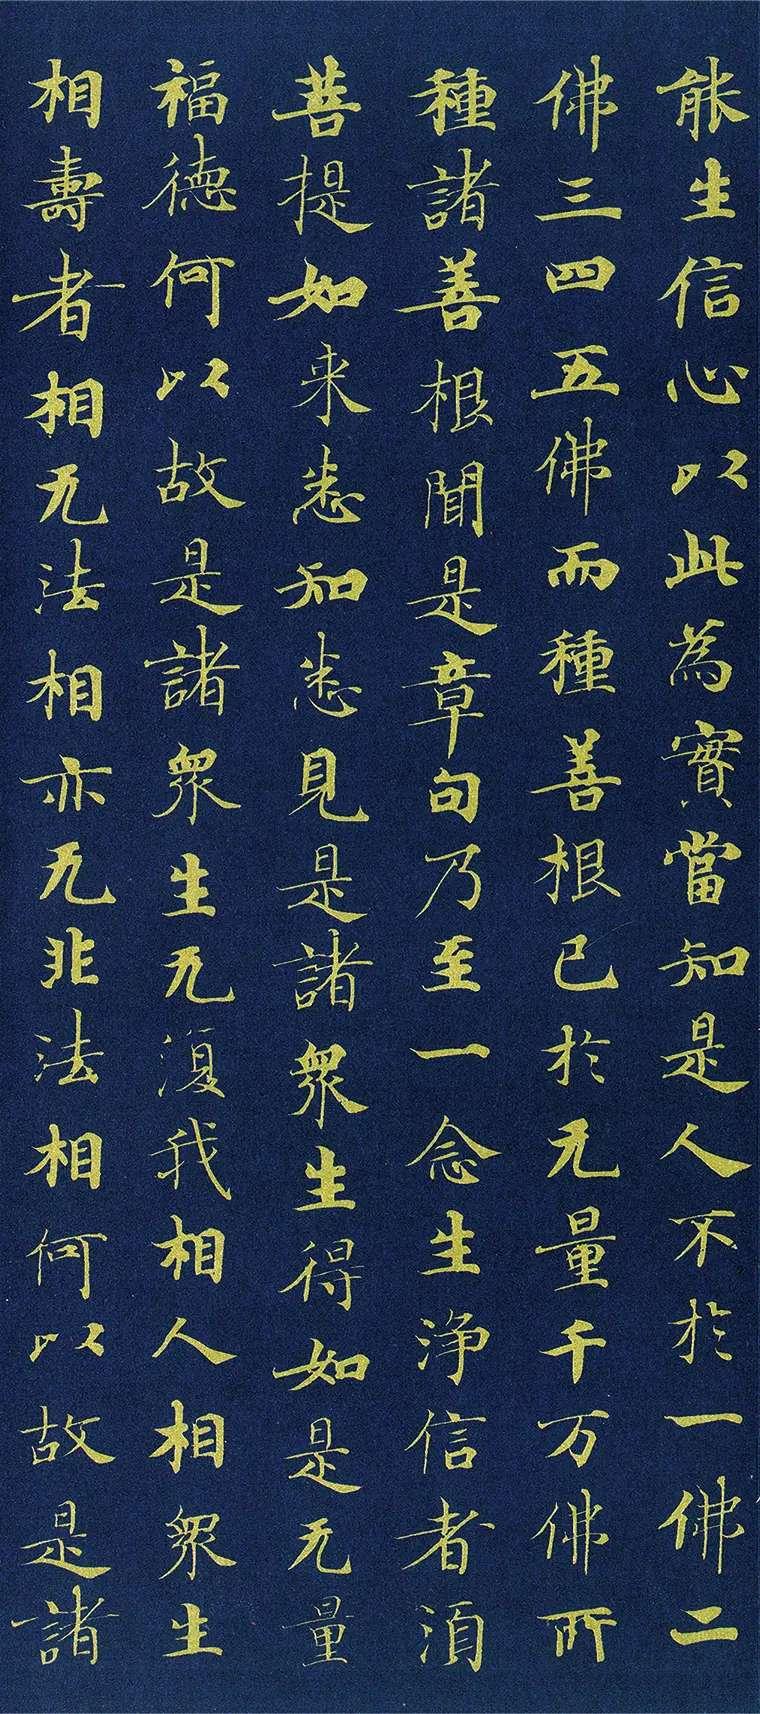 能生信心以此為實當知是人不於一佛二
佛三四五佛而種善根已於无量千万佛所
種諸善根聞是章句乃至一念生淨信者須
菩提如来悉知悉見是諸衆生得如是无量
福德何以故是諸衆生无復我相人相衆生
相壽者相无法相亦无非法相何以故是諸